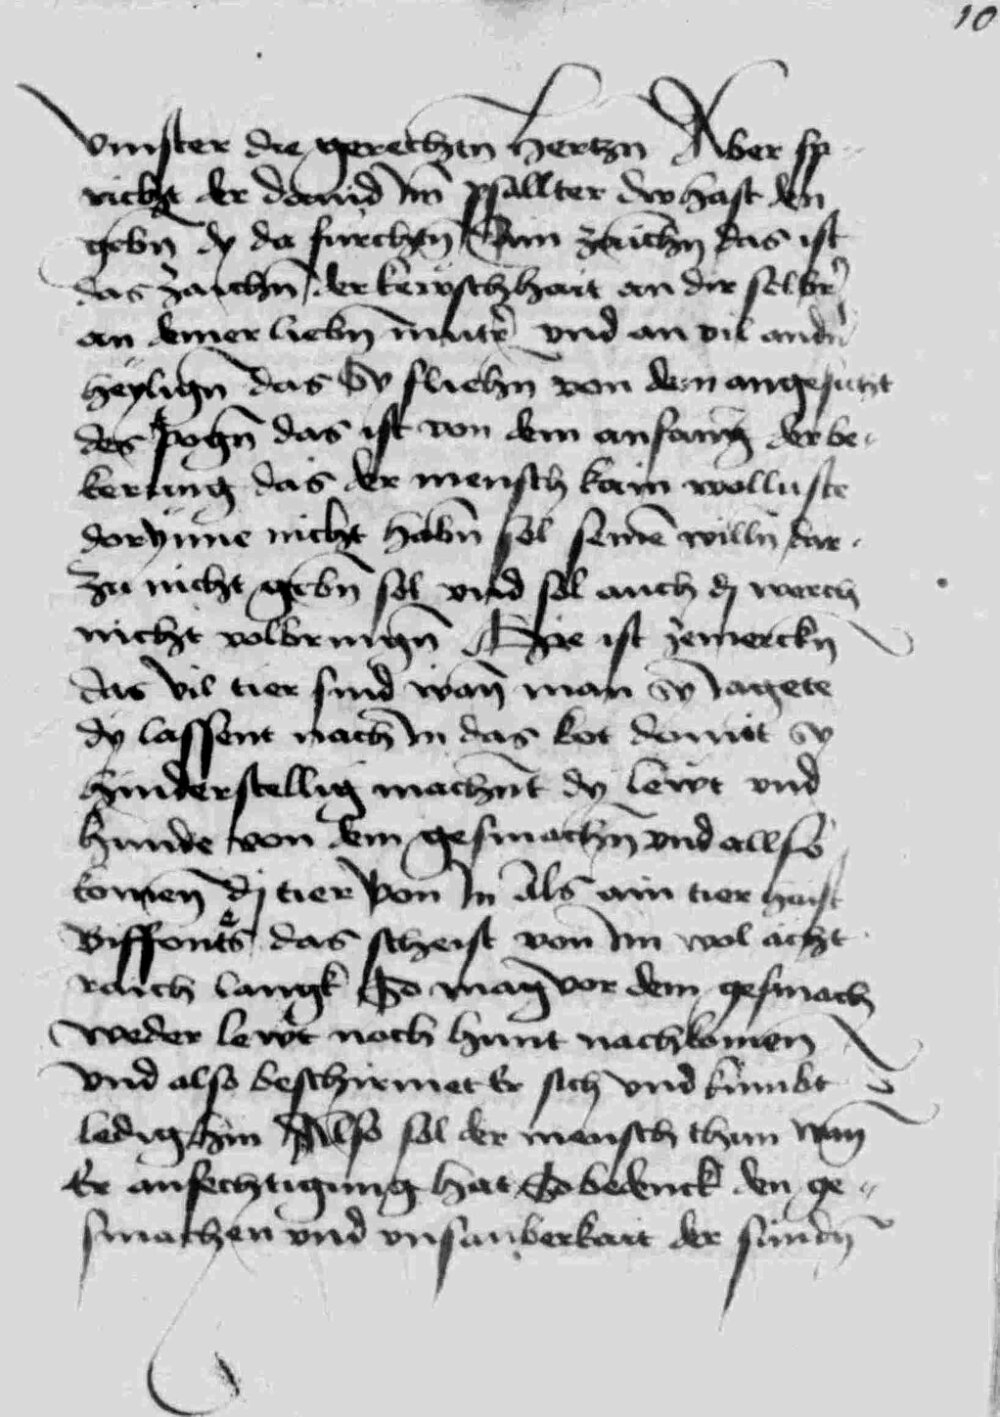 10
vinster die gerechtn̄ hertzn Aber sp-
richt der dauid Im̄ psallter dw hast den
gebn̄ dy da furchtn̄ Ain zaichn̄ das ist
das zaichn̄ der kewschhait an dir selbr̄
an deiner liebn̄ mutr̄ vnd an vil andn̄
heylign̄ das Sy fliehn̄ von dem angesicht
des pogn̄ das ist von dem anfanng der be-
kerung das der mensch kain wolluste
dorynne nicht habn̄ sol seinē willn̄ dar-
zu nicht gebn̄ sol vnd sol auch dy werch
nicht volbringn̄ Hie ist zemerckn̄
das vil tier sind wan̄ man sy Iagete
dy lassent nach In das kot domit sy
hinderstellig machn̄t dy lewt vnd
hunde von dem gesmachn̄ vnd allso
komen̄ dy tier von In Als ain tier haist
Biffontes das scheist von im wol acht
rauch langk So mag vor dem gesmach
weder lewt noch hunt nachkomen̄
vnd also beschirmet Er sich vnd kumbt
ledig hin Also sol der mensch thun wan̄
Er anfechtigung hat So bedenck den ge-
smachen vnd vnsauberkait der sundn̄